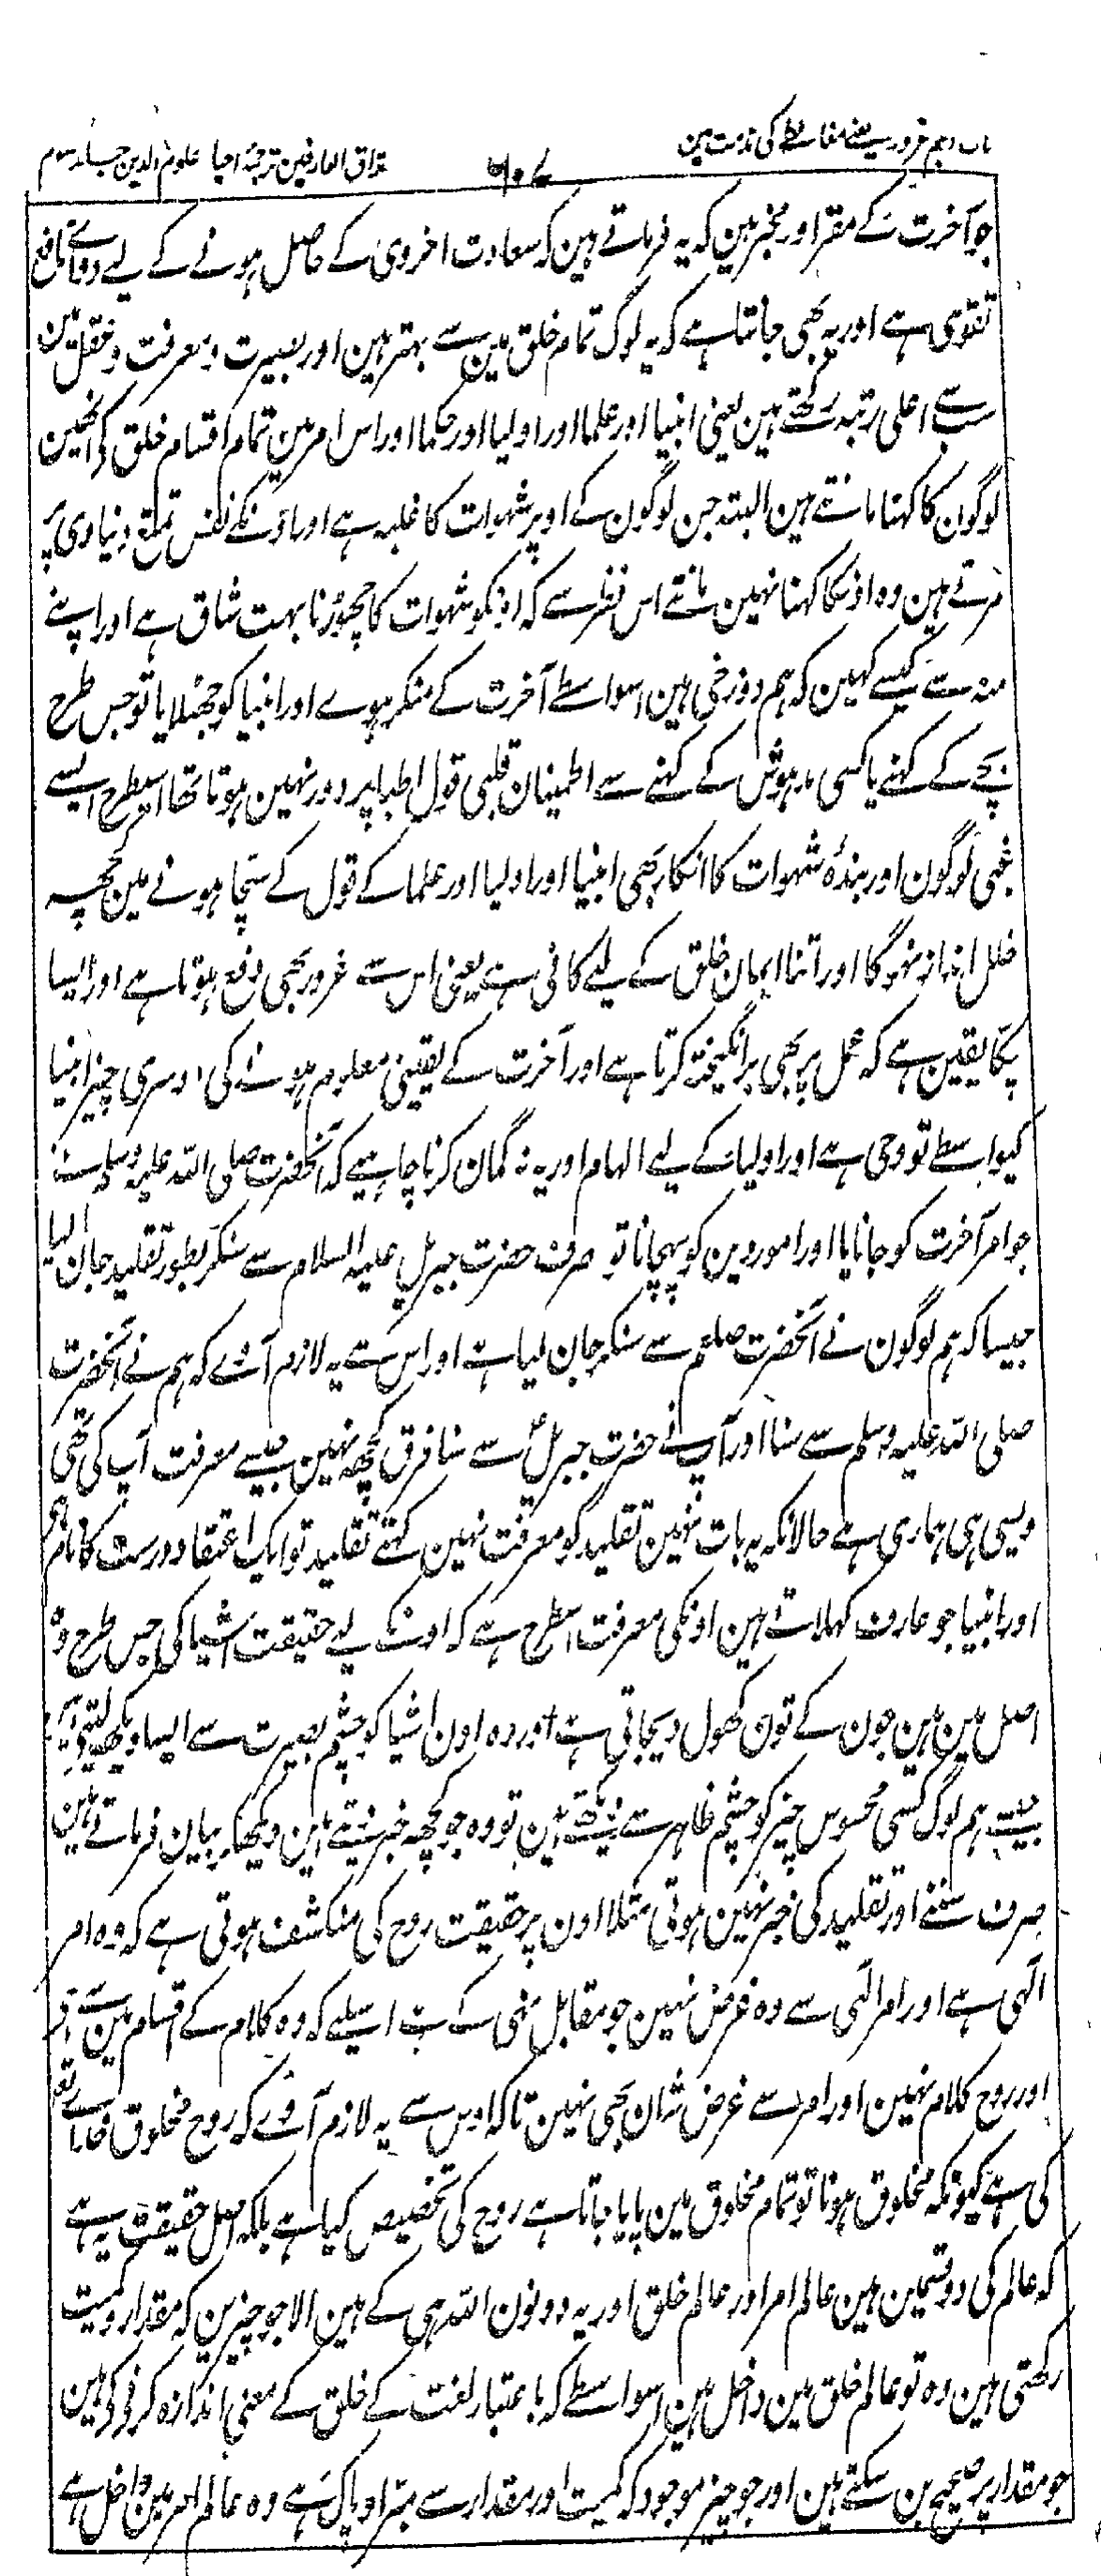 باب دہم غرور یعنے مغالطے کی مذمت مین
۶۰۷
مذاق العارفین ترجمۂ احیا علوم الدین جلد سوم
جو آخرت کے مقر اور مخبر ہین کہ یہ فرماتے ہین کہ سعادت اخروی کے حاصل ہونے کے لیے دواے نافع
تقوی ہے اور یہ بھی جانتا ہے کہ یہ لوگ تمام خلق مین سے بہتر ہین اور بصیرت و معرفت و عقل مین
سب سے اعلی رتبہ رکھتے ہین یعنی انبیا اور علما اور اولیا اور حکما اور اس امر مین تمام اقسام خلق کی انھین
لوگون کا کہنا مانتے ہین البتہ جن لوگون کے اوپر شہوات کا غلبہ ہے اور اونکے نفس تمتع دنیاوی پر
مرتے ہین وہ اونکا کہنا نہین مانتے اس نظر سے کہ اونکو شہوات کا چھوڑنا بہت شاق ہے اور اپنے
منہ سے کیسے کہین کہ ہم دوزخی ہین اسواسطے آخرت کے منکر ہوے اور انبیا کو جھٹلایا تو جس طرح
بچے کے کہنے یا کسی مدہوش کے کہنے سے اطمینان قلبی قول اطبا پر دور نہین ہوتا تھا اسیطرح ایسے
غبی لوگون اور بندۂ شہوات کا انکار بھی انبیا اور اولیا اور علما کے قول کے سچا ہونے مین کچھ
خلل انداز نہوگا اور اتنا ایمان خلق کے لیے کافی ہے یعنی اس سے غرور بھی دفع ہوتا ہے اور ایسا
پکا یقین ہے کہ عمل پر بھی برانگیختہ کرتا ہے اور آخرت کے یقینی معلوم ہونے کی دوسری چیز انبیا
کیواسطے تو وحی ہے اور اولیا کے لیے الہام اور یہ نہ گمان کرنا چاہیے کہ آنحضرت صلی اللہ علیہ وسلم نے
جو امر آخرت کو جانا یا اور امور دین کو پہچانا تو صرف حضرت جبریل علیہ السلام سے سنکر بطور تقلید جان لیا
جیسا کہ ہم لوگون نے آنحضرت صلعم سے سنکر جان لیا ہے اور اس سے یہ لازم آئے کہ ہم نے آنحضرت
صلی اللہ علیہ وسلم سے سنا اور آپ نے حضرت جبریل سے سنا فرق کچھ نہین جیسے معرفت آپ کی تھی
ویسی ہی ہماری ہے حالانکہ یہ بات نہین تقلید کو معرفت نہین کہتے تقلید تو ایک اعتقاد درست کا نام ہے
اور انبیا جو عارف کہلاتے ہین اونکی معرفت اسطرح ہے کہ اونکے لیے حقیقت اشیا کی جس طرح وہ
اصل مین ہین جون کے تون کھول دیجاتی ہے اور وہ اون اشیا کو چشم بصیرت سے ایسا دیکھ لیتے ہین
جیسے ہم لوگ کسی محسوس چیز کو چشم ظاہر سے دیکھتے ہین تو وہ جو کچھ خبر دیتے ہین دیکھکر بیان فرماتے ہین
صرف سننے اور تقلید کی خبر نہین ہوتی مثلا اون پر حقیقت روح کی منکشف ہوتی ہے کہ وہ امر
الٰہی ہے اور امر الٰہی سے وہ غرض نہین جو مقابل نہی کے ہے اسلیے کہ وہ کلام کے اقسام مین سے ہے
اور روح کلام نہین اور امر سے غرض شان بھی نہین تاکہ اوس سے یہ لازم آوے کہ روح مخلوق خداے تعالی
کی ہے کیونکہ مخلوق ہونا تو تمام مخلوق مین پایا جاتا ہے روح کی تخصیص کیا ہے بلکہ اصل حقیقت یہ ہے
کہ عالم کی دو قسمین ہین عالم امر اور عالم خلق اور یہ دونون اللہ ہی کے ہین الا جو چیزین کہ مقدار و کمیت
رکھتی ہین وہ تو عالم خلق مین داخل ہین اسواسطے کہ باعتبار لغت کے خلق کے معنی اندازہ کرنے کے ہین
جو مقدار پر صحیح بن سکتے ہین اور جو چیز موجود کہ کمیت اور مقدار سے مبرا و پاک ہے وہ عالم امر مین داخل ہے